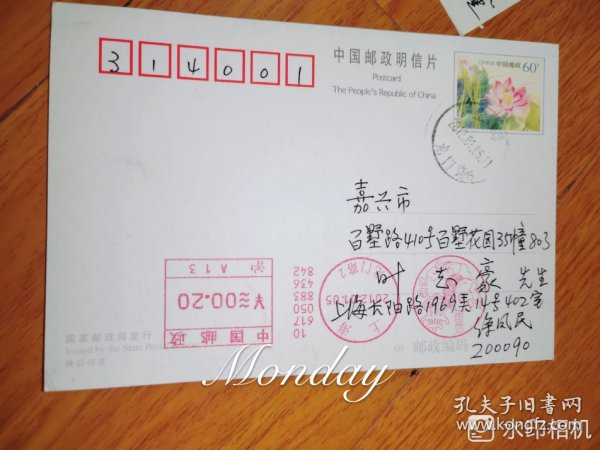 314001
中国邮政明信片
Postcard
The People's Republic of China
中国邮政 60分
2012.01.05
嘉兴市
百墅路410号百墅花园35幢803
叶 志 豪 先生
上海长阳路1969弄14号402室
徐凤民
200090
沪 A13
¥≈00.20
中国邮政
842
436
883
050
617
10
上海
2012.01.05
国家邮政局发行
Issued by the State Post
映日荷花
09 邮政编码
Monday
孔夫子旧书网
www.kongfz.com
水印相机